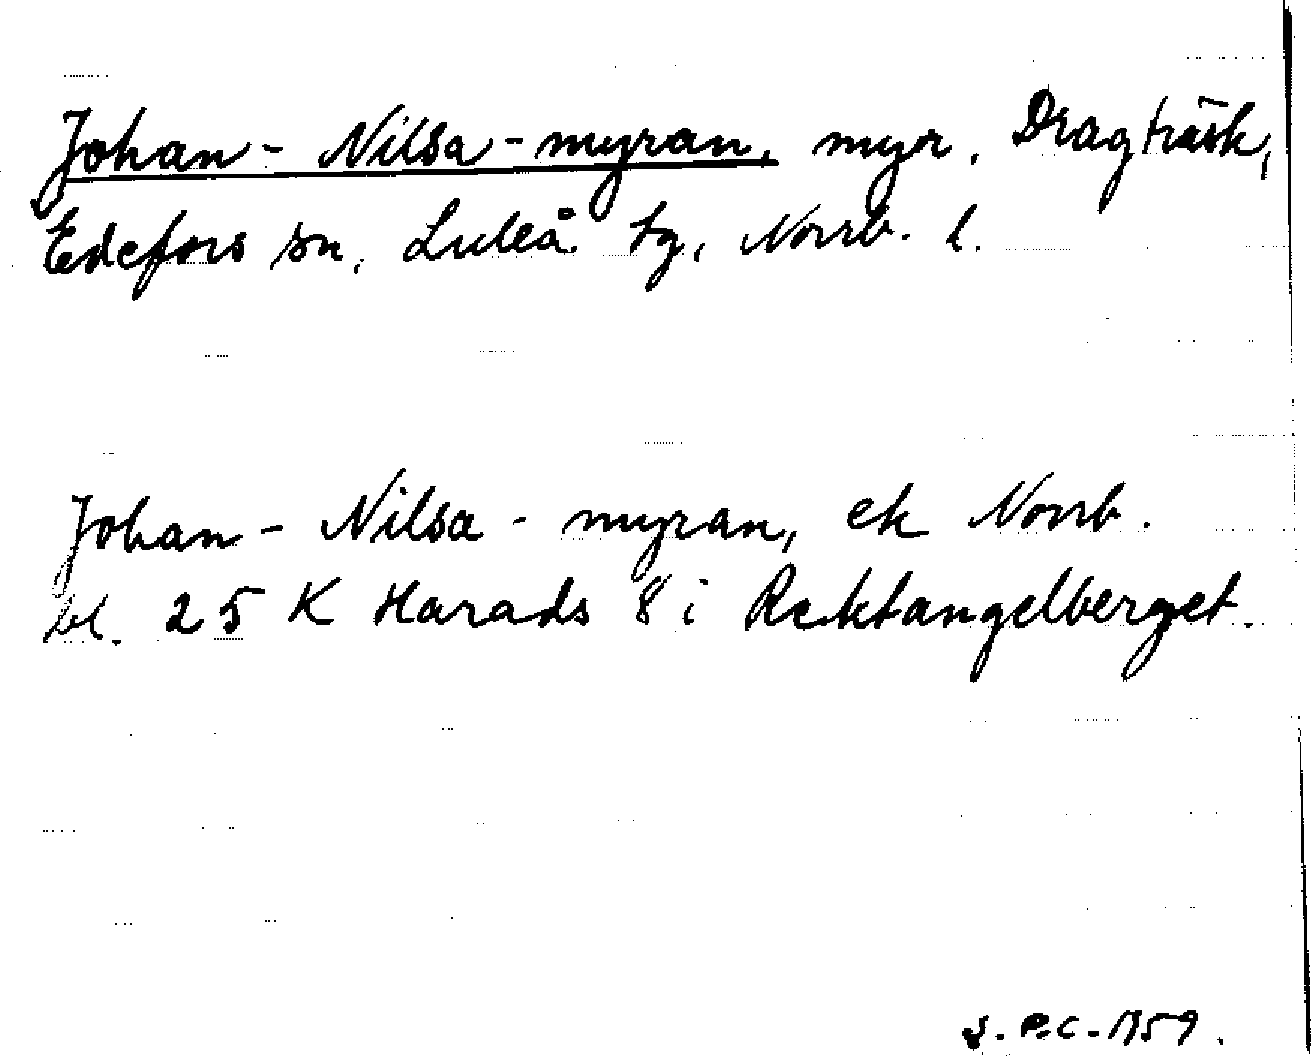 Johan-Nilsa-myran, myr, Dragträsk,
Edefors sn, Luleå tg, Norrb. l.
Johan-Nilsa-myran, ek Norrb.
bl. 25 K Harads 8 i Rektangelberget.
1959.